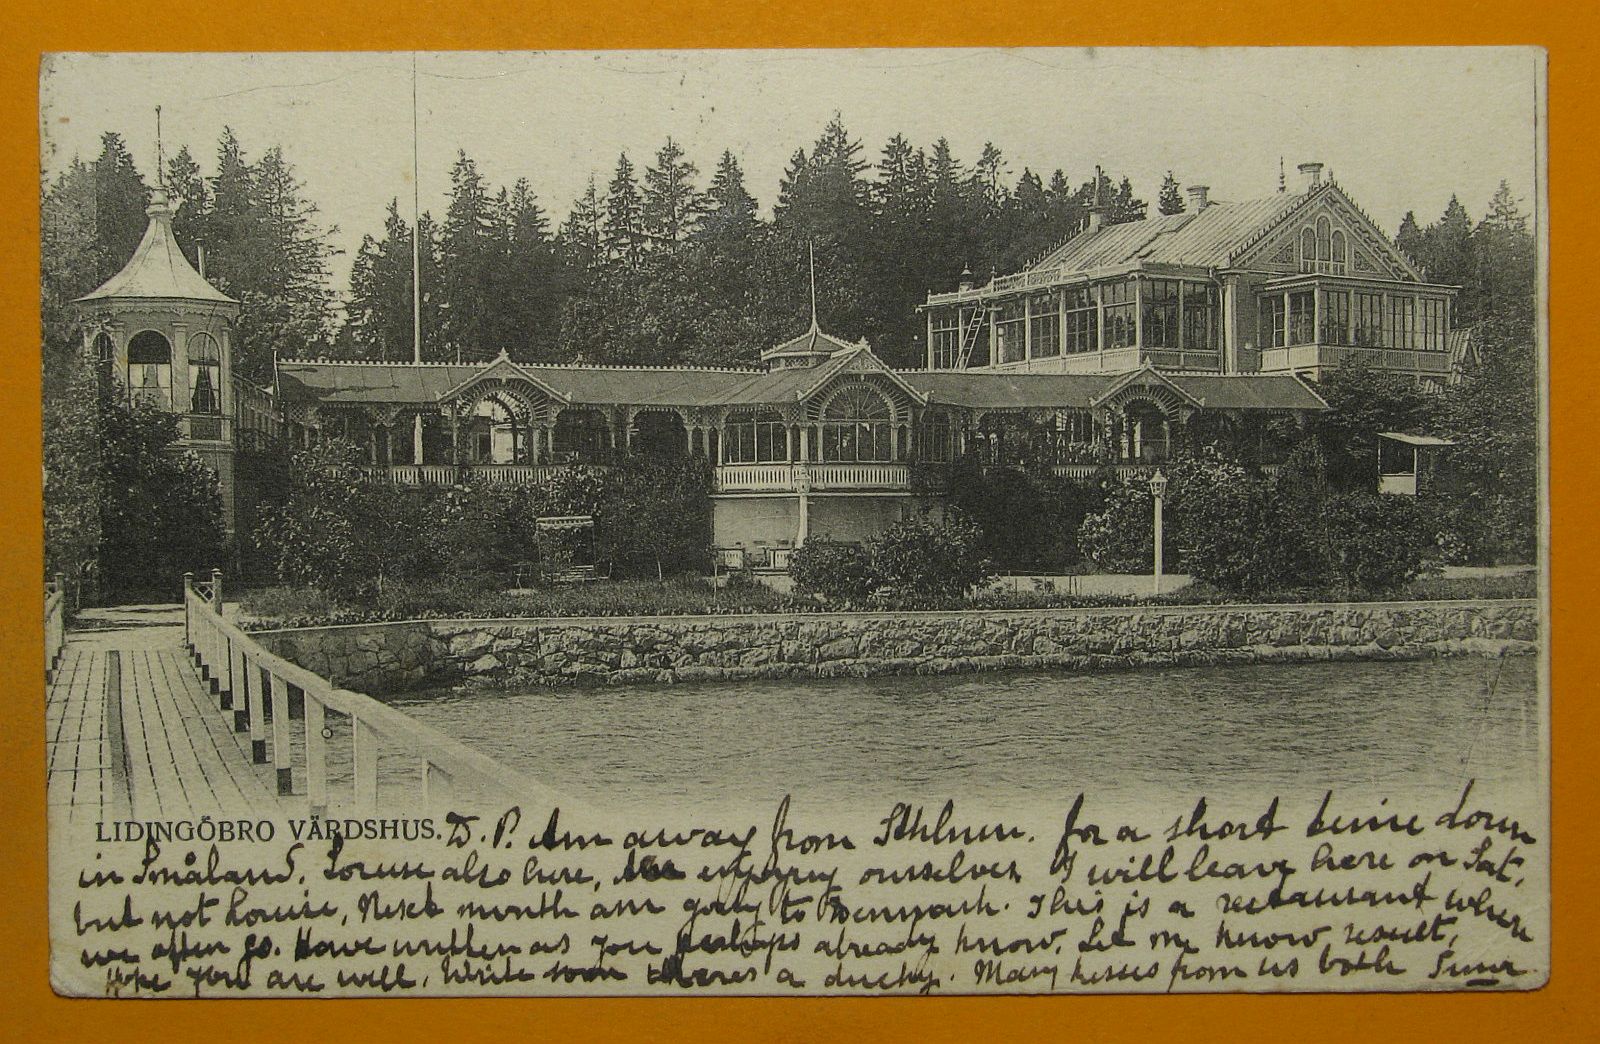 LIDINGÖBRO VÄRDSHUS. D. P. Am away from Sthlmn. for a short time down
in Småland. Louise also here, enjoying ourselves I will leave here on Sat,
but not Louise, Next month am going to Denmark. This is a restaurant where
we often go. Have written as you perhaps already know. Let me know result,
Hope you are well. Write soon theres a ducky. Many kisses from us both